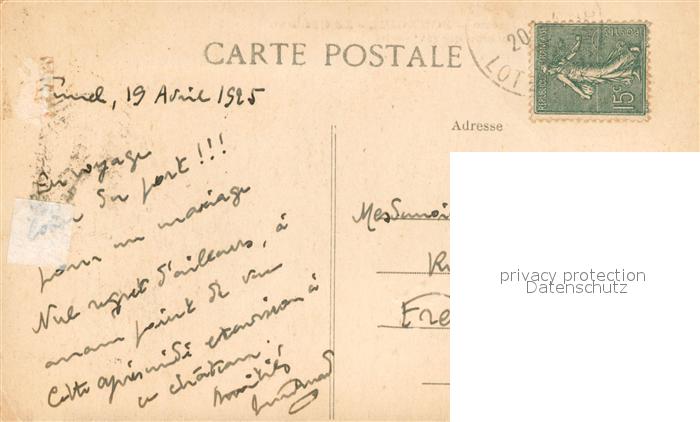 CARTE POSTALE
20
LOT
REPUBLIQUE FRANÇAISE
15c
Fumel, 19 Avril 1925
Adresse
En voyage
!!!
pour un mariage
Nul regret d'ailleurs, à
aucun point de vue
Cette après midi excursion à
ce château.
Amitiés
Mesdemois
privacy protection
Datenschutz